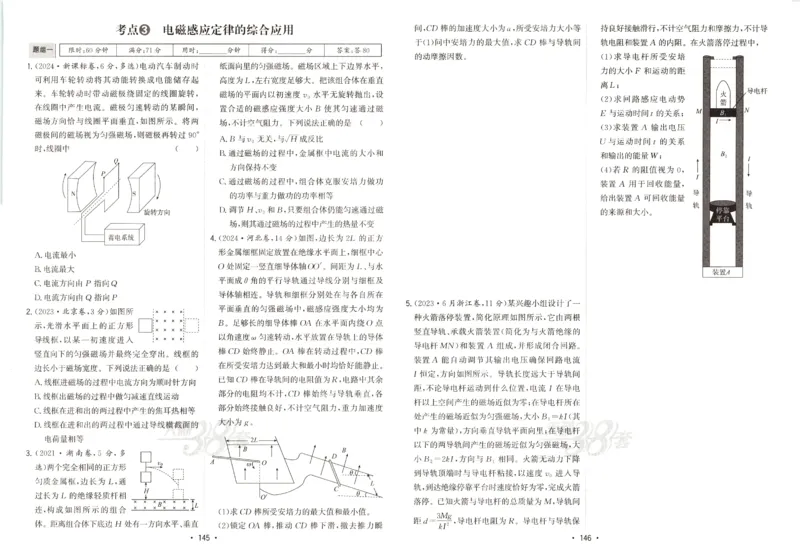 考点❸ 电磁感应定律的综合应用
题组一 限时:60分钟 满分:71分 用时:______分钟 得分:______分 答案:答80
1.(2024·新课标卷,6分,多选)电动汽车制动时
可利用车轮转动将其动能转换成电能储存起
来。车轮转动时带动磁极绕固定的线圈旋转,
在线圈中产生电流。磁极匀速转动的某瞬间,
磁场方向恰与线圈平面垂直,如图所示。将两
磁极间的磁场视为匀强磁场,则磁极再转过90°
时,线圈中 ( )
Q
P
S
S
旋转方向
蓄电系统
A.电流最小
B.电流最大
C.电流方向由P指向Q
D.电流方向由Q指向P
2.(2023·北京卷,3分)如图所
示,光滑水平面上的正方形
导线框,以某一初速度进入
竖直向下的匀强磁场并最终完全穿出。线框的
边长小于磁场宽度。下列说法正确的是 ( )
A.线框进磁场的过程中电流方向为顺时针方向
B.线框出磁场的过程中做匀减速直线运动
C.线框在进和出的两过程中产生的焦耳热相等
D.线框在进和出的两过程中通过导线横截面的
电荷量相等
3.(2021·湖南卷,5分,多
选)两个完全相同的正方形
匀质金属框,边长为L,通
过长为L的绝缘轻质杆相
连,构成如图所示的组合
体。距离组合体下底边H处有一方向水平、垂直
v₀
H
B
L
纸面向里的匀强磁场。磁场区域上下边界水平,
高度为L,左右宽度足够大。把该组合体在垂直
磁场的平面内以初速度v₀水平无旋转抛出,设
置合适的磁感应强度大小B使其匀速通过磁
场,不计空气阻力。下列说法正确的是 ( )
A.B与v₀无关,与√H成反比
B.通过磁场的过程中,金属框中电流的大小和
方向保持不变
C.通过磁场的过程中,组合体克服安培力做功
的功率与重力做功的功率相等
D.调节H、v₀和B,只要组合体仍能匀速通过磁
场,则其通过磁场的过程中产生的热量不变
4.(2024·河北卷,14分)如图,边长为2L的正方
形金属细框固定放置在绝缘水平面上,细框中心
O处固定一竖直细导体轴OO′。间距为L、与水
平面成θ角的平行导轨通过导线分别与细框及
导体轴相连。导轨和细框分别处在与各自所在
平面垂直的匀强磁场中,磁感应强度大小均为
B。足够长的细导体棒OA在水平面内绕O点
以角速度ω匀速转动,水平放置在导轨上的导体
棒CD始终静止。OA棒在转动过程中,CD棒
在所受安培力达到最大和最小时均恰好能静止。
已知CD棒在导轨间的电阻值为R,电路中其余
部分的电阻均不计,CD棒始终与导轨垂直,各
部分始终接触良好,不计空气阻力,重力加速度
大小为g。
2L
B
A
O
ω
O′
D
B
C
L
θ
θ
(1)求CD棒所受安培力的最大值和最小值。
(2)锁定OA棒,推动CD棒下滑,撤去推力瞬
· 145 ·
间,CD棒的加速度大小为a,所受安培力大小等
于(1)问中安培力的最大值,求CD棒与导轨间
的动摩擦因数。
5.(2023·6月浙江卷,11分)某兴趣小组设计了一
种火箭落停装置,简化原理如图所示,它由两根
竖直导轨、承载火箭装置(简化为与火箭绝缘的
导电杆MN)和装置A组成,并形成闭合回路。
装置A能自动调节其输出电压确保回路电流
I恒定,方向如图所示。导轨长度远大于导轨间
距,不论导电杆运动到什么位置,电流I在导电
杆以上空间产生的磁场近似为零;在导电杆所在
处产生的磁场近似为匀强磁场,大小B₁=kI(其
中k为常量),方向垂直导轨平面向里;在导电杆
以下的两导轨间产生的磁场近似为匀强磁场,大
小B₂=2kI,方向与B₁相同。火箭无动力下降
到导轨顶端时与导电杆粘接,以速度v₀进入导
轨,到达绝缘停靠平台时速度恰好为零,完成火箭
落停。已知火箭与导电杆的总质量为M,导轨间
距d=3Mg/kI²,导电杆电阻为R。导电杆与导轨保
· 146 ·
持良好接触滑行,不计空气阻力和摩擦力,不计导
轨电阻和装置A的内阻。在火箭落停过程中,
(1)求导电杆所受安培
力的大小F和运动的距
离L;
(2)求回路感应电动势
E与运动时间t的关系;
(3)求装置A输出电压
U与运动时间t的关系
和输出的能量W;
(4)若R的阻值视为0,
装置A用于回收能量,
给出装置A可回收能量
的来源和大小。
火箭
导电杆
M
B₁
N
I
B₂
I
I
导轨
停靠平台
导轨
装置A